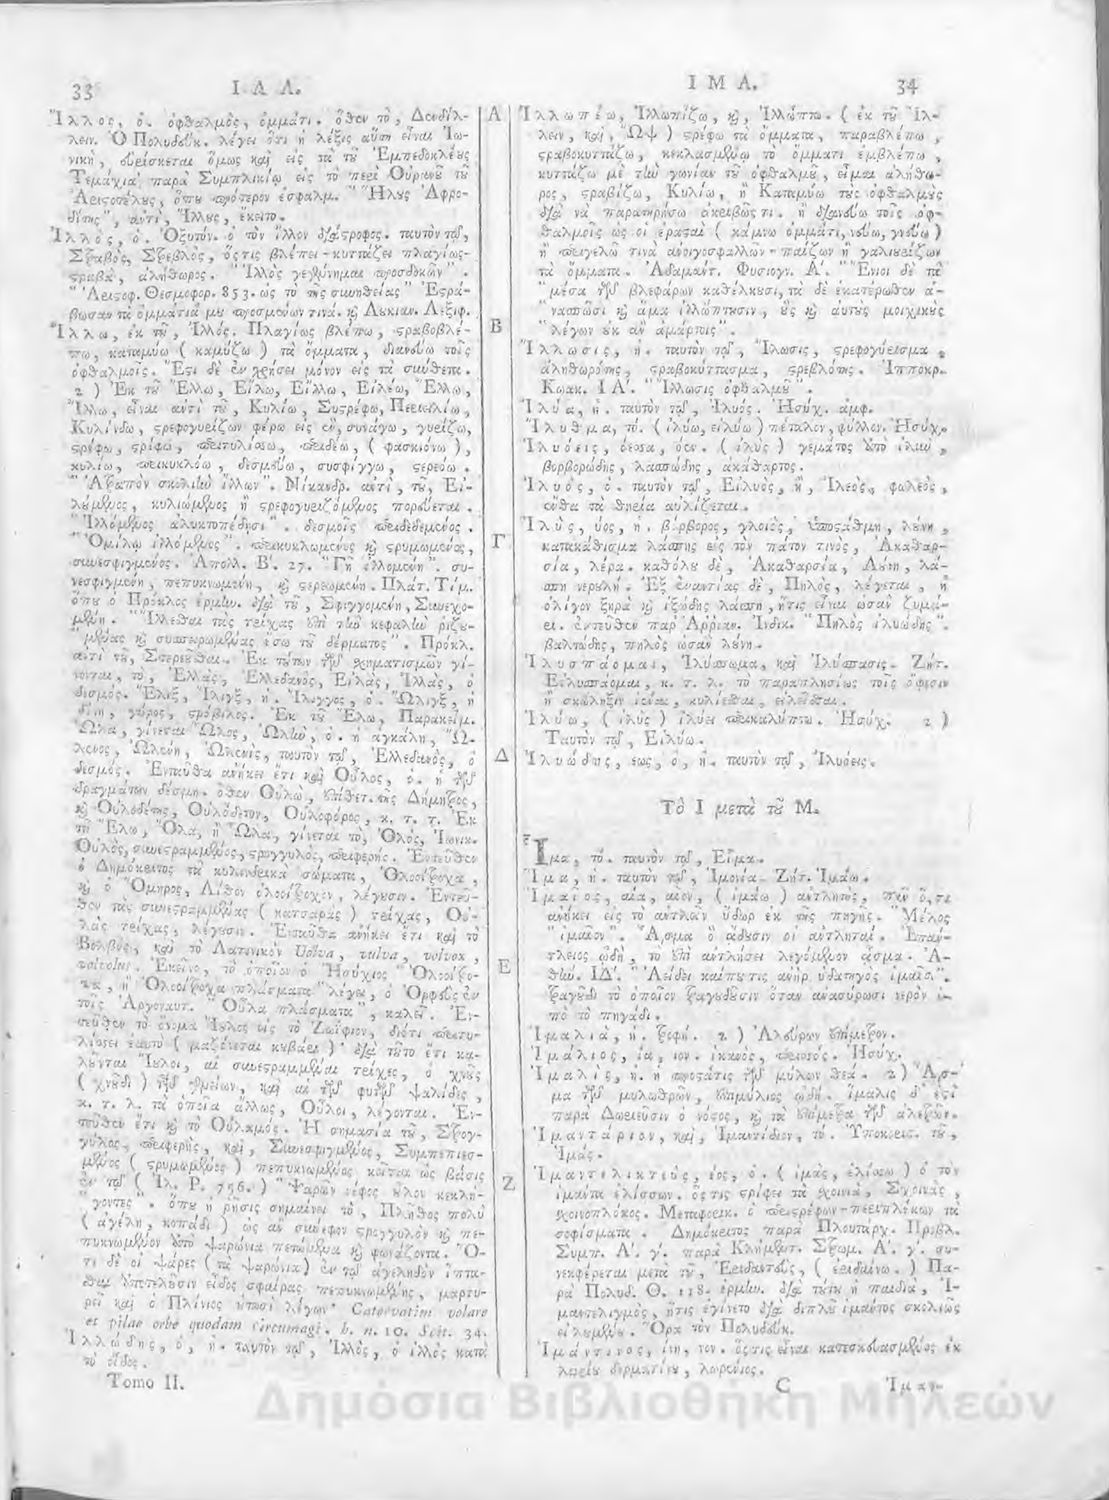 33 Ι Λ Λ.
Ἴλλος, ὁ. ὀφθαλμὸς, ὀμμάτι. ὅθεν τὸ, Δενδίλ-
λειν. Ὁ Πολυδεύκ. λέγει ὅτι ἡ λέξις αὕτη εἶναι Ἰω-
νικὴ, εὑρίσκεται ὅμως καὶ εἰς τὰ τοῦ Ἐμπεδοκλέους
Τεμάχια παρὰ Συμπλικίῳ εἰς τὸ περὶ Οὐρανοῦ τοῦ
Ἀριστοτέλους, ὅπου πρότερον ἐσφαλμ. "Ἥλους Ἀφρο-
δίτης", αὐτὶ, Ἴλλους, ἔκειτο.
Ἰλλὸς, ὁ. Ὀξυτόν. ὁ τὸν ἴλλον διάστροφος. ταυτὸν τῷ,
Στραβὸς, Στρεβλὸς, ὅςτις βλέπει - κυττάζει πλαγίως-
στραβὰ, ἀλήθωρος. "Ἰλλὸς γεγένημαι προσδοκῶν".
"Ἀριστοφ. Θεσμοφορ. 853. ὡς τὸ τῆς συνηθείας" Ἐστρά-
βωσαν τὰ ὀμμάτιά μου προσμένων τινά. καὶ Λουκιαν. Λεξιφ.
Ἴλλω, ἐκ τοῦ, Ἰλλός. Πλαγίως βλέπω, στραβοβλέ-
πω, καταμύω ( καμύζω ) τὰ ὄμματα, διανεύω τοῖς
ὀφθαλμοῖς. Ἔστι δὲ ἐν χρήσει μόνον εἰς τὰ σύνθετα.
2 ) Ἐκ τοῦ Ἔλλω, Εἴλω, Εἴλλω, Εἰλέω, Ἔλλω,
Ἴλλω, εἶναι αὐτὶ τοῦ, Κυλίω, Συστρέφω, Περιελίω,
Κυλίνδω, στρεφογυρίζων φέρω εἰς ἓν, συνάγω, γυρίζω,
στρέφω, στρίφω, περιτυλίσσω, περιδέω, ( φασκιόνω ),
κυλίω, περικυκλόω, δεσμεύω, συσφίγγω, στερεόω.
"Ἀτραπὸν σκολιὴν ἴλλων". Νίκανδρ. αὐτὶ, τοῦ, Εἰ-
λόμενος, κυλιόμενος ἢ στρεφογυριζόμενος πορεύεται.
"Ἰλλόμενος ἀλυκτοπέδῃσι". δεσμοῖς περιδεδεμένος.
"Ὁμίλῳ ἰλλόμενος". περικυκλωμένος καὶ στρυμωμένος,
συνεσφιγμένος. Ἀπολλ. Β. 27. "Γῆ ἰλλομένη". συ-
νεσφιγμένη, πεπυκνωμένη, καὶ στερεωμένη. Πλάτ. Τίμ.
ὅπου ὁ Πρόκλος ἑρμην. διὰ τοῦ, Σφιγγομένη, Συνεχο-
μένη. "Ἴλλεσθαι τὰς τρίχας ἐπὶ τὴν κεφαλὴν ῥιζου-
"μένας καὶ συσπειρωμένας ἔσω τοῦ δέρματος". Πρόκλ.
αὐτὶ τοῦ, Στερεοῦσθαι. Ἐκ τούτων τῶν σχηματισμῶν γί-
νονται, τὸ, Ἑλλὰς, Ἐλλεδανὸς, Εἰλὰς, Ἰλλὰς, ὁ
δεσμός. Ἕλιξ, Ἴλιγξ, ἡ. Ἴλιγγος, ὁ. Ὤλιγξ, ἡ
δίνη, γύρος, στρόβιλος. Ἐκ τοῦ Ἔλω, Παρακείμ.
Ὦλα, γίνεται Ὦλος, Ὠλὴν, ὁ. ἡ ἀγκάλη, Ὠ-
λένος, Ὠλένη, Ὠλενὶς, ταυτὸν τῷ, Ἐλλεδανὸς, ὁ
δεσμός. Ἐνταῦθα ἀνήκει ἔτι καὶ Οὖλος, ὁ. ἡ τῶν
δραγμάτων δέσμη. ὅθεν Οὐλὼ, ἐπίθετ. τῆς Δήμητρος,
καὶ Οὐλοδέτης, Οὐλόδετον, Οὐλοφόρος, κ. τ. τ. Ἐκ
τοῦ Ἔλω, Ὄλα, ἢ Ὦλα, γίνεται τὸ, Ὀλὸς, Ἰωνικ.
Οὐλὸς, συνεστραμμένος, στρογγυλὸς, περιφερής. Ἐντεῦθεν
ὁ Δημόκριτος τὰ κυλινδρικὰ σώματα, Ὀλοοίτροχα,
καὶ ὁ Ὅμηρος, Λίθον ὀλοοίτροχον, λέγουσιν. Ἐντεῦ-
θεν τὰς συνεστραμμένας ( κατσαρὰς ) τρίχας, Οὔ-
λας τρίχας, λέγουσιν. Ἐνταῦθα ἀνήκει ἔτι καὶ τὸ
Βολβὸς, καὶ τὸ Λατινικὸν Volva, vulva, volvox,
volvolus. Ἐκεῖνο, τὸ ὁποῖον ὁ Ἡσύχιος "Ὀλοοίτρο-
χα, ἢ Ὀλοοίτροχα πλάσματα" λέγει, ὁ Ὀρφεὺς ἐν
τοῖς Ἀργοναυτ. "Οὖλα πλάσματα", καλεῖ. Ἐν-
τεῦθεν τὸ ὄνομα Ἴουλος εἰς τὸ Ζωΰφιον, διότι περιτυ-
λίσσει ἑαυτὸ ( μαζόνεται κουβάρι )· διὰ τοῦτο ἔτι κα-
λοῦνται Ἴουλοι, αἱ συνεστραμμέναι τρίχες, ὁ χνοῦς
( χνοῦδι ) τῶν γενείων, καὶ αἱ τῶν φυτῶν ψαλίδες,
κ. τ. λ. τὰ ὁποῖα ἄλλως, Οὖλοι, λέγονται. Ἐν-
τεῦθεν ἔτι καὶ τὸ Οὐλαμός. Ἡ σημασία τοῦ, Στρογ-
γύλος, περιφερὴς, καὶ, Συνεσφιγμένος, Συμπεπιεσ-
μένος ( στρυμωμένος ) πεπυκνωμένος κεῖται ὡς βάσις
ἐν τῷ ( Ἰλ. Ρ. 756. ) "Ψαρῶν νέφος οὖλον κεκλή-
"γοντες". ὅπου ἡ ῥῆσις σημαίνει τὸ, Πλῆθος πολὺ
( ἀγέλη, κοπάδι ) ὡς ἂν σύνεφον στρογγυλὸν καὶ πε-
πυκνωμένον ἀπὸ ψαρώνια πετώμενα καὶ φωνάζοντα. Ὅ-
τι δὲ οἱ ψᾶρες ( τὰ ψαρώνια ) ἐν τῷ ἀγεληδὸν ἵπτα-
σθαι ἀποτελοῦσιν εἶδος σφαίρας πεπυκνωμένης, μαρτυ-
ρεῖ καὶ ὁ Πλίνιος οὕτωσὶ λέγων· Catervatim volare
et pilae orbe quodam circumagi. h. n. 10. Sect. 34.
Ἰλλώδης, ὁ, ἡ. ταυτὸν τῷ, Ἰλλὸς, ὁ ἰλλὸς κατὰ
τὸ εἶδος.
Tomo II.
Α
Β
Γ
Δ
Ε
Ζ
Ι Μ Α. 34
Ἰλλωπέω, Ἰλλωπίζω, καὶ, Ἰλλώπτω. ( ἐκ τοῦ Ἴλ-
λειν, καὶ, Ὤψ ) στρέφω τὰ ὄμματα, παραβλέπω,
στραβοκυττάζω, κεκλασμένῳ τῷ ὄμματι ἐμβλέπω,
κυττάζω μὲ τὴν γωνίαν τοῦ ὀφθαλμοῦ, εἶμαι ἀλήθω-
ρος, στραβίζω, Κυλίω, ἢ Καταμύω τοὺς ὀφθαλμοὺς
διὰ νὰ παρατηρήσω ἀκριβῶς τι. ἢ διανεύω τοῖς ὀφ-
θαλμοῖς ὡς οἱ ἐρασταὶ ( κάμνω ὀμμάτι, νεύω, γνεύω )
ἢ περιγελῶ τινὰ ἀνοιγοσφαλλῶν - παίζων ἢ γαλιυρίζων
τὰ ὄμματα. Ἀδαμάντ. Φυσιογν. Α. "Ἔνιοι δὲ τὰ
"μέσα τῶν βλεφάρων καθέλκουσι, τὰ δὲ ἑκατέρωθεν ἀ-
"νασπῶσι καὶ ἅμα ἰλλώπτουσιν, οὓς καὶ αὐτοὺς μοιχικοὺς
"λέγων οὐκ ἂν ἁμάρτοις".
Ἴλλωσις, ἡ. ταυτὸν τῷ, Ἴλωσις, στρεφογύρισμα,
ἀληθωρότης, στραβοκύττασμα, στρεβλότης. Ἱπποκρ.
Κωακ. Ι Α. "Ἴλλωσις ὀφθαλμοῦ".
Ἰλύα, ἡ. ταυτὸν τῷ, Ἰλυός. Ἡσύχ. ἀμφ.
Ἴλυθμα, τό. ( ἰλύω, εἰλύω ) πέταλον, φύλλον. Ἡσύχ.
Ἰλυόεις, όεσσα, όεν. ( ἰλὺς ) γεμάτος ἀπὸ ἰλὺν,
βορβορώδης, λασπώδης, ἀκάθαρτος.
Ἰλυὸς, ὁ. ταυτὸν τῷ, Εἰλυὸς, ἢ, Ἰλεὸς, φωλεὸς,
ἔνθα τὰ θηρία αὐλίζεται.
Ἰλὺς, ύος, ἡ. βόρβορος, γλοιὸς, ὑποστάθμη, λάσπη,
κατακάθισμα λάσπης εἰς τὸν πάτον τινὸς, Ἀκαθαρ-
σία, λέρα. καθόλου δὲ, Ἀκαθαρσία, Λύπη, λά-
σπη νερουλή. Ἐξ ἐναντίας δὲ, Πηλὸς, λέγεται, ἡ
ὀλίγον ξηρὰ καὶ ἰξώδης λάσπη, ἥτις εἶναι ὡσὰν ζυμά-
ρι. ἐντεῦθεν παρ' Ἀρριαν. Ἰνδικ. "Πηλὸς ἰλυώδης".
βαλτώδης, πηλὸς ὡσὰν λύνη.
Ἰλυσπάομαι, Ἰλύσπωμα, καὶ Ἰλύσπασις. Ζήτ.
Εἰλυσπάομαι, κ. τ. λ. τὸ παραπλησίως τοῖς ὄφεσιν
ἢ σκώληξιν ἰέναι, κυλίεσθαι, εἰλεῖσθαι.
Ἰλύω, ( ἰλὺς ) ἰλύσι περικαλύπτω. Ἡσύχ. 2 )
Ταυτὸν τῷ, Εἰλύω.
Ἰλυώδης, εως, ὁ, ἡ. ταυτὸν τῷ, Ἰλυόεις.
Τὸ Ι μετὰ τοῦ Μ.
Ἷμα, τό. ταυτὸν τῷ, Εἷμα.
Ἵμα, ἡ. ταυτὸν τῷ, Ἱμονία. Ζήτ. Ἱμάω.
Ἱμαῖος, αία, αῖον, ( ἱμάω ) ἀντλητὸς, πᾶν ὅ,τι
ἀνήκει εἰς τὸ ἀντλεῖν ὕδωρ ἐκ τῆς πηγῆς. "Μέλος
"ἱμαῖον". ᾎσμα ὃ ᾄδουσιν οἱ ἀντληταί. Ἐπάν-
τλειος ᾠδὴ, τὸ ἐπὶ ἀντλήσει λεγόμενον ᾆσμα. Ἀ-
θήν. ΙΔ. "Ἀείδει καί που τις ἀνὴρ ὑδατηγὸς ἱμαῖον".
τραγοῦδι τὸ ὁποῖον τραγουδοῦσιν ὅταν ἀνασύρωσι νερὸν ἀ-
πὸ τὸ πηγάδι.
Ἱμαλιὰ, ἡ. τροφή. 2 ) Ἀλεύρων ἐπίμετρον.
Ἱμάλιος, ία, ιον. ἱκανὸς, περισσός. Ἡσύχ.
Ἱμαλὶς, ἡ. ἡ προστάτις τῶν μύλων θεά. 2 ) ᾎσ-
μα τῶν μυλωθρῶν, ἐπιμύλιος ᾠδή. ἱμαλὶς δ' ἐστὶ
παρὰ Δωριεῦσιν ὁ νόστος, καὶ τὰ ἐπίμετρα τῶν ἀλεύρων.
Ἱμαντάριον, καὶ, Ἱμαντίδιον, τό. Ὑποκορις. τοῦ,
Ἱμάς.
Ἱμαντελικτεὺς, έος, ὁ. ( ἱμὰς, ἑλίσσω ) ὁ τὸν
ἱμάντα ἑλίσσων. ὅςτις στρίφει τὰ σχοινία, Σχοινᾶς,
σχοινοπλόκος. Μεταφορικ. ὁ περιστρέφων - περιπλέκων τὰ
σοφίσματα. Δημόκριτος παρὰ Πλουτάρχ. Προβλ.
Συμπ. Α. γ. παρὰ Κλήμεντ. Στρωμ. Α. γ. συ-
νεκφέρεται μετὰ τοῦ, Ἐριδαντεὺς, ( ἐριδαίνω. ) Πα-
ρὰ Πολυδ. Θ. 118. ἑρμην. διὰ τούτων ἡ παιδιὰ, Ἱ-
μαντελιγμὸς, ἥτις ἐγίνετο διὰ διπλοῦ ἱμάντος σκολιῶς
εἰλουμένου. Ὅρα τὸν Πολυδεύκ.
Ἱμάντινος, ίνη, ινον. ὅςτις εἶναι κατεσκευασμένος ἐκ
λωρίου δερματίνου, λωρένιος.
C Ἱμαν-
Δημόσια Βιβλιοθήκη Μηλεών